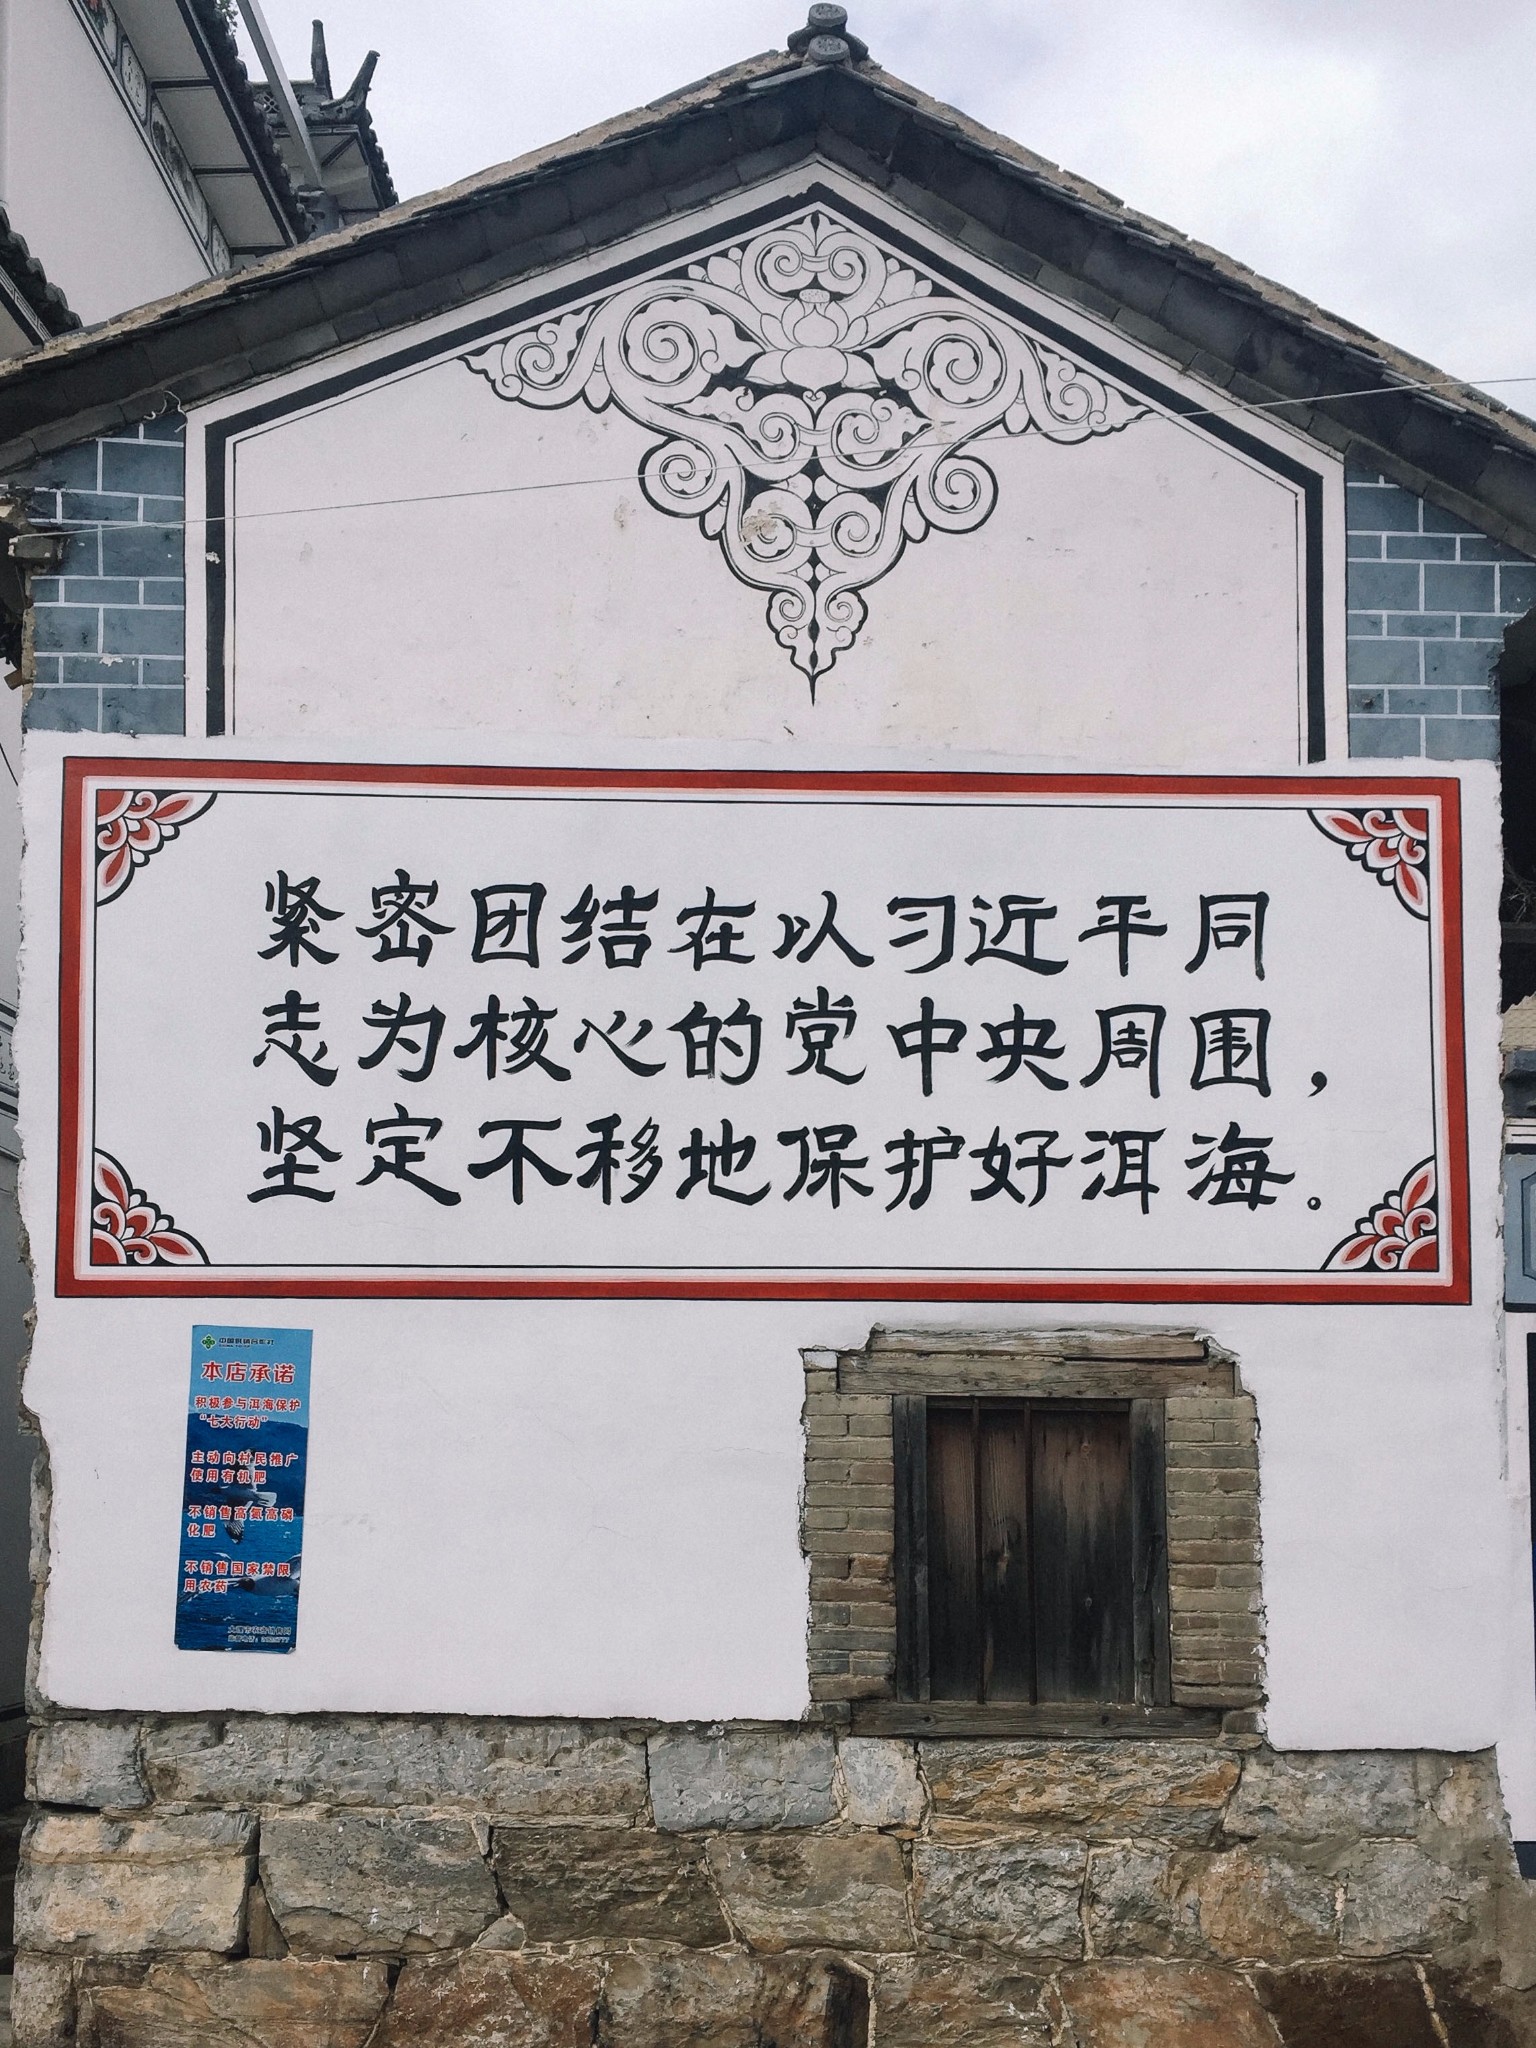 紧密团结在以习近平同
志为核心的党中央周围，
坚定不移地保护好洱海。
中国供销合作社
本店承诺
积极参与洱海保护
“七大行动”
主动向村民推广
使用有机肥
不销售高氮高磷
化肥
不销售国家禁限
用农药